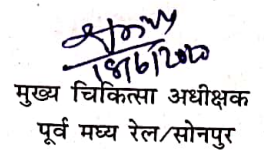 18/6/2020
मुख्य चिकित्सा अधीक्षक
पूर्व मध्य रेल/सोनपुर